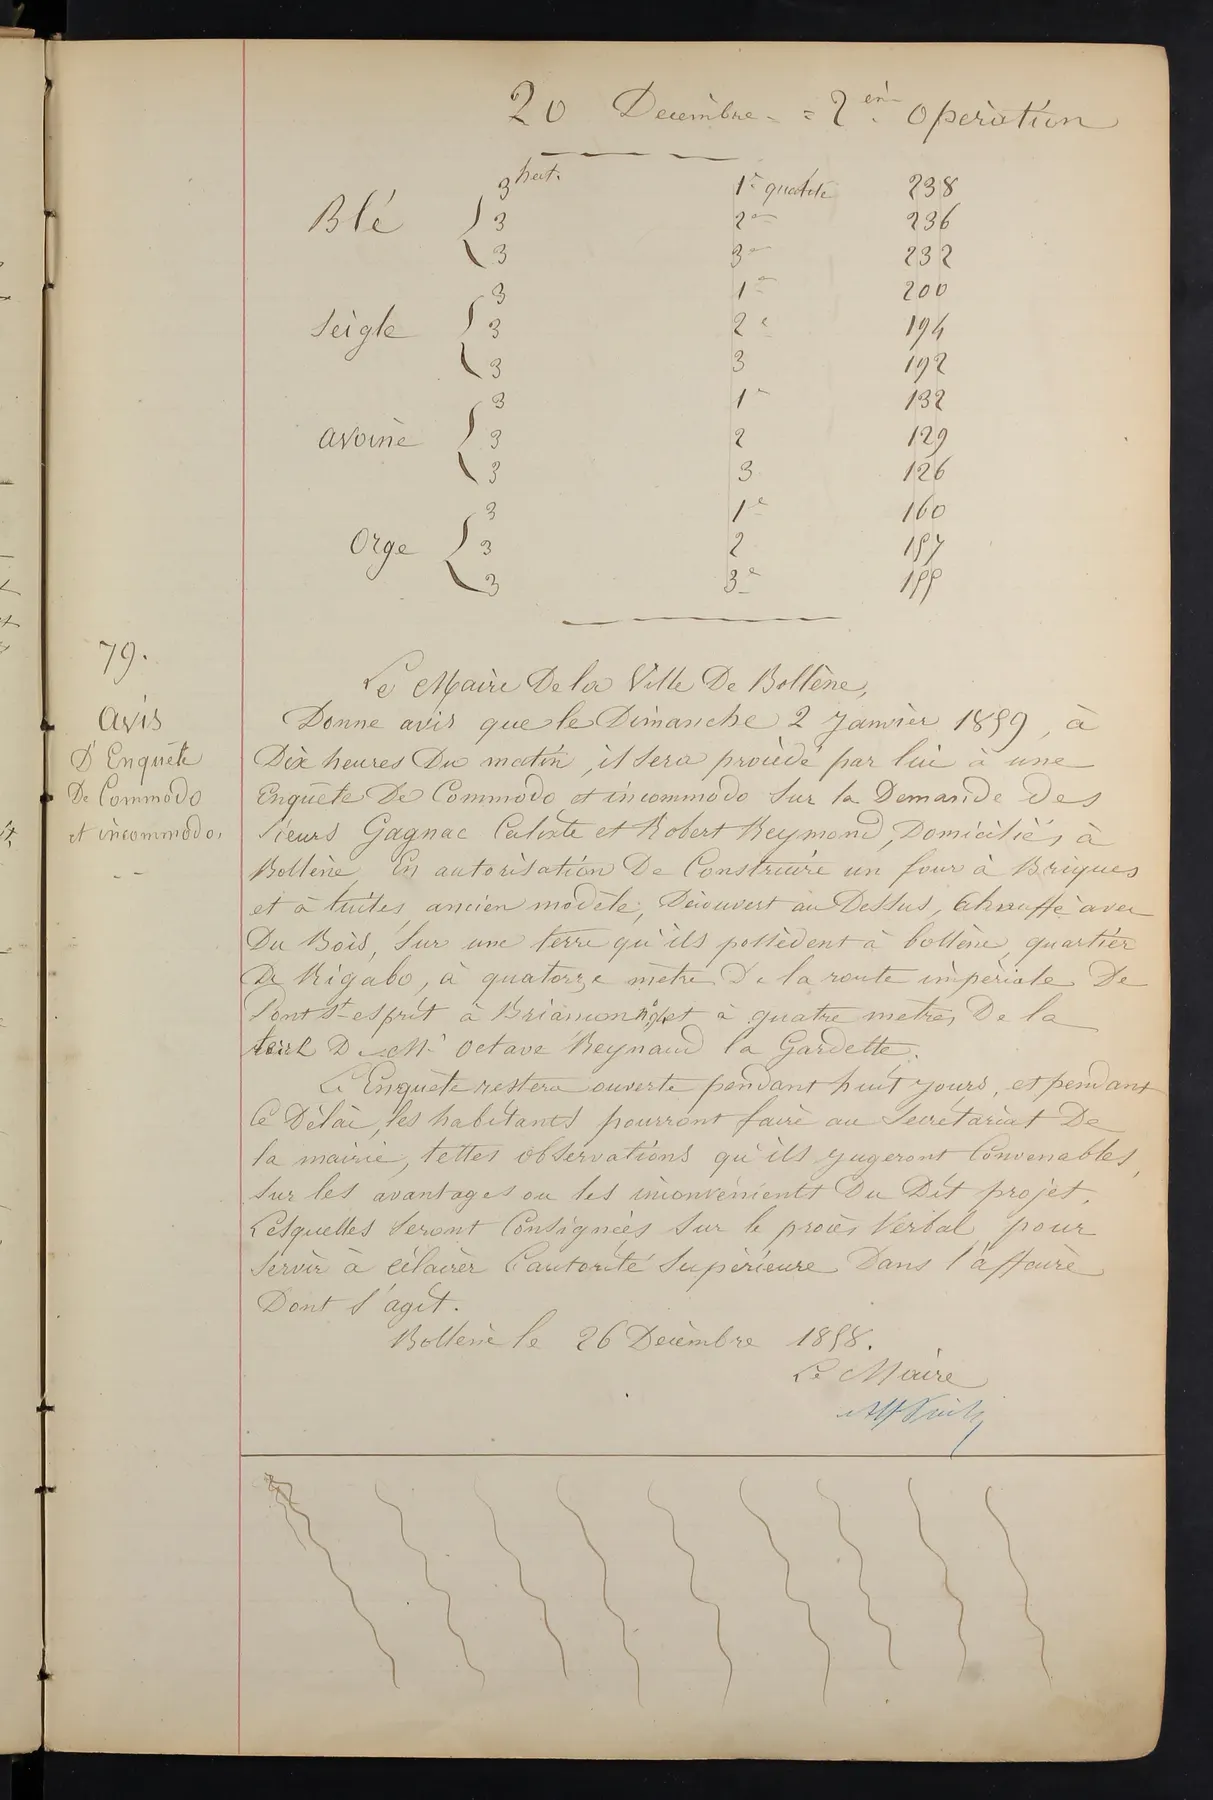 20 Decembre - = 2em Operation
Blé 3 hect. 1re qualité 238
3 2me 236
3 3me 232
Seigle 3 1re 200
3 2e 194
3 3 192
avoine 3 1re 132
3 2 129
3 3 126
Orge 3 1e 160
3 2 157
3 3e 155
79.
avis
D'Enquête
De Commodo
et incommodo,
Le Maire De la Ville De Bollène,
Donne avis que le Dimanche 2 Janvier 1859, à
Dix heures Du matin, il sera procédé par lui à une
Enquête De Commodo et incommodo sur la Demande des
sieurs Gagnac Calixte et Robert Reymond, Domiciliés à
Bollène En autorisation De Construire un four à Briques
et à tuiles, ancien modèle, Découvert au Dessus, Chauffé avec
Du Bois, sur une terre qu'ils possèdent à bollène, quartier
De Rigabo, à quatorze mètres De la route impériale De
Pont St esprit à Briançon et à quatre metres De la
terre De Mr Octave Reynaud la Gardette.
L'Enquête restera ouverte pendant huit jours, et pendant
Ce Délai, les habitants pourront faire au Secrétariat De
la mairie, telles observations qu'ils jugeront Convenables,
sur les avantages ou les inconvénients Du Dit projet,
Lesquelles seront Consignées sur le procès Verbal pour
servir à éclairer l'autorité Supérieure Dans l'affaire
Dont s'agit.
Bollène le 26 Decembre 1858.
Le Maire